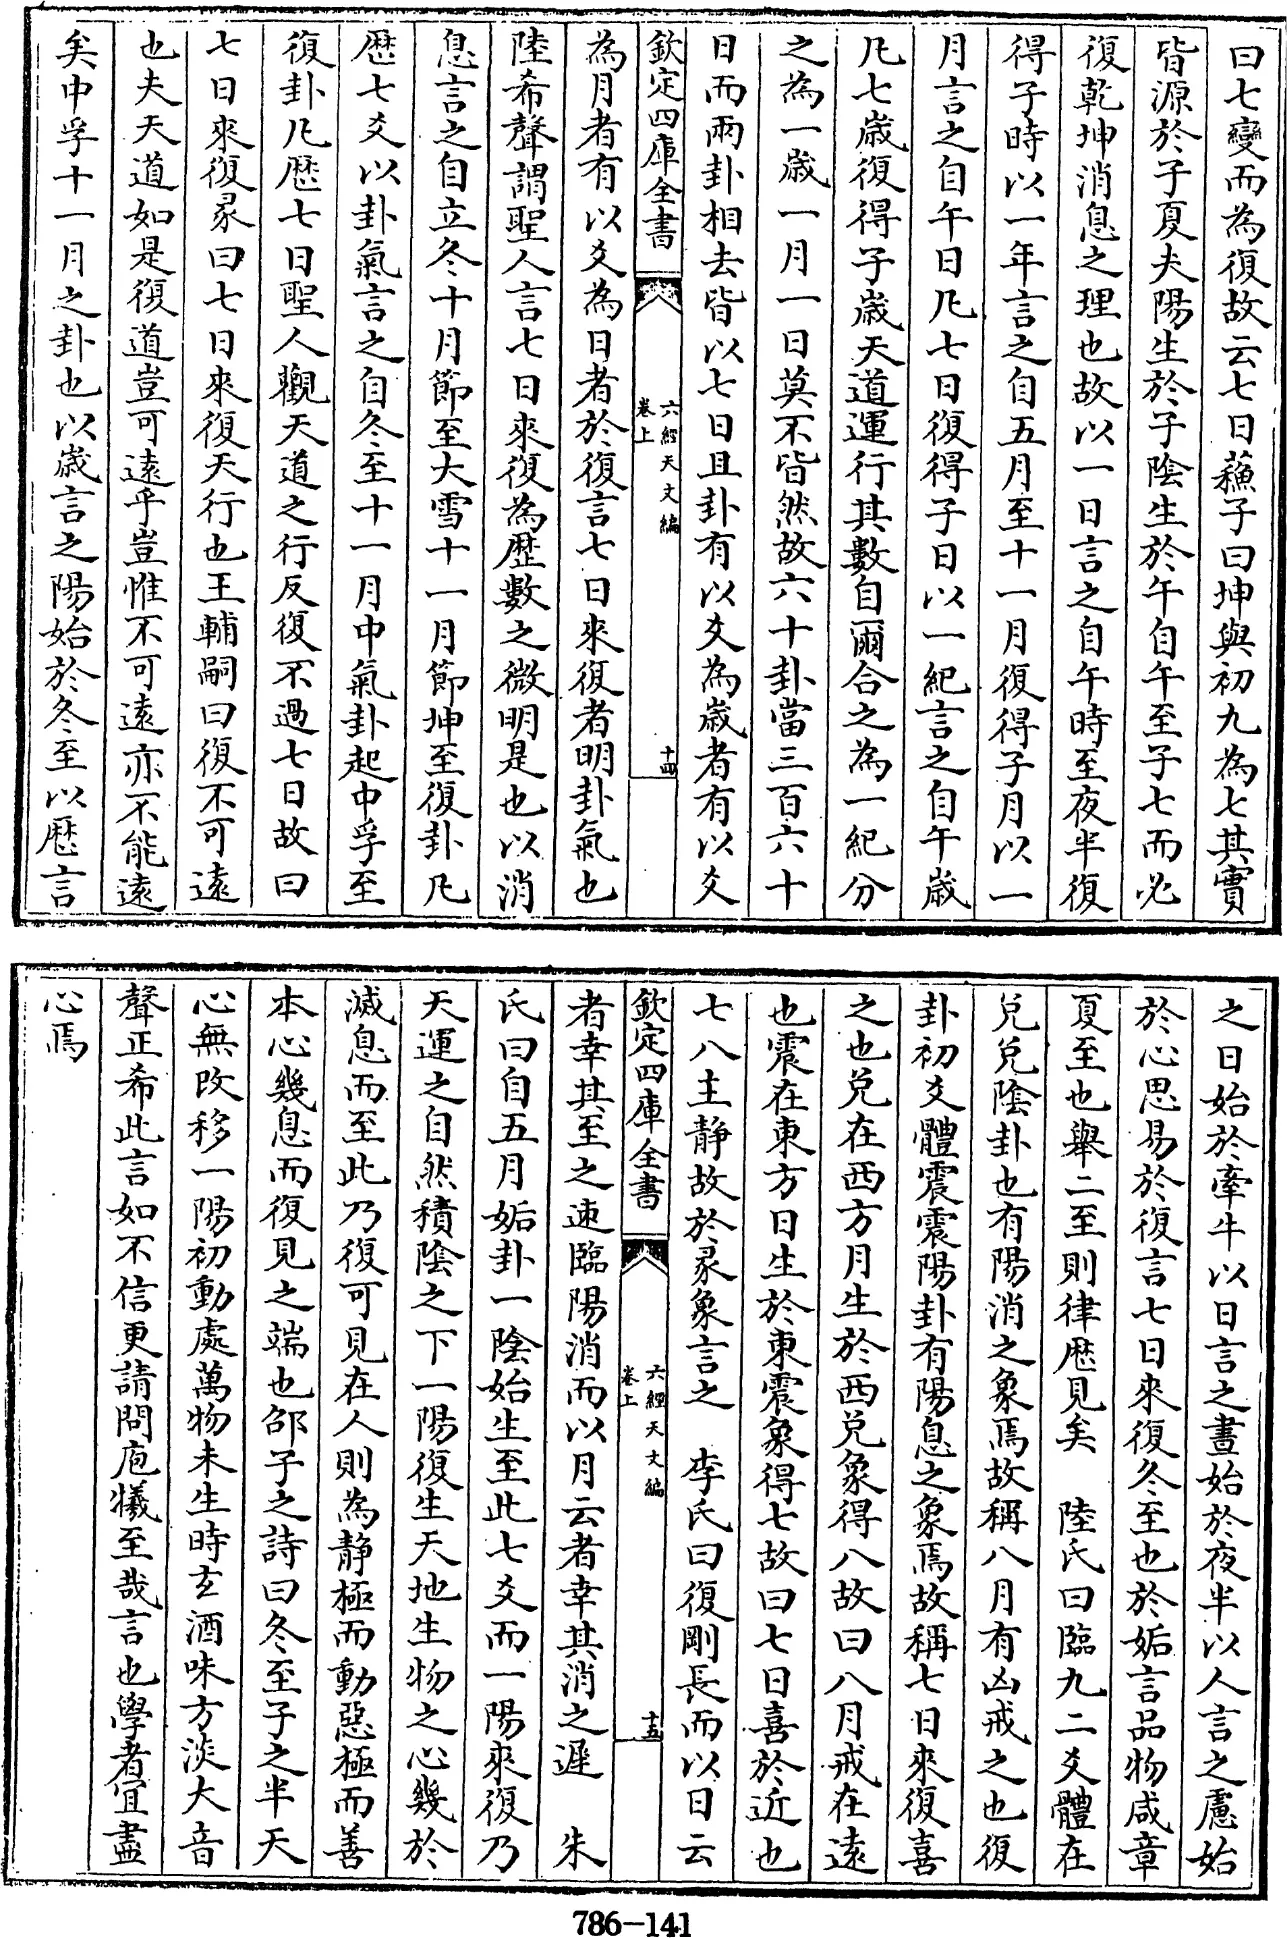 曰七變而為復故云七日蘓子曰坤與初九為七其實
皆源於子夏夫陽生於子陰生於午自午至子七而必
復乾坤消息之理也故以一日言之自午時至夜半復
得子時以一年言之自五月至十一月復得子月以一
月言之自午日凡七日復得子日以一紀言之自午歲
凡七歲復得子歲天道運行其數自爾合之為一紀分
之為一歲一月一日莫不皆然故六十卦當三百六十
日而兩卦相去皆以七日且卦有以爻為歲者有以爻
欽定四庫全書
六經天文編
卷上
十四
為月者有以爻為日者於復言七日來復者明卦氣也
陸希聲謂聖人言七日來復為歴數之微明是也以消
息言之自立冬十月節至大雪十一月節坤至復卦凡
歴七爻以卦氣言之自冬至十一月中氣卦起中孚至
復卦凡歴七日聖人觀天道之行反復不過七日故曰
七日來復彖曰七日來復天行也王輔嗣曰復不可遠
也夫天道如是復道豈可遠乎豈惟不可遠亦不能遠
矣中孚十一月之卦也以歲言之陽始於冬至以歴言
之日始於牽牛以日言之晝始於夜半以人言之慮始
於心思易於復言七日來復冬至也於姤言品物咸章
夏至也舉二至則律歴見矣　陸氏曰臨九二爻體在
兌兌陰卦也有陽消之象焉故稱八月有凶戒之也復
卦初爻體震震陽卦有陽息之象焉故稱七日來復喜
之也兌在西方月生於西兌象得八故曰八月戒在遠
也震在東方日生於東震象得七故曰七日喜於近也
七八主静故於彖象言之　李氏曰復剛長而以日云
欽定四庫全書
六經天文編
卷上
十五
者幸其至之速臨陽消而以月云者幸其消之遲　朱
氏曰自五月姤卦一陰始生至此七爻而一陽來復乃
天運之自然積陰之下一陽復生天地生物之心幾於
滅息而至此乃復可見在人則為静極而動惡極而善
本心幾息而復見之端也邵子之詩曰冬至子之半天
心無改移一陽初動處萬物未生時玄酒味方淡大音
聲正希此言如不信更請問庖犧至哉言也學者宜盡
心焉
786-141